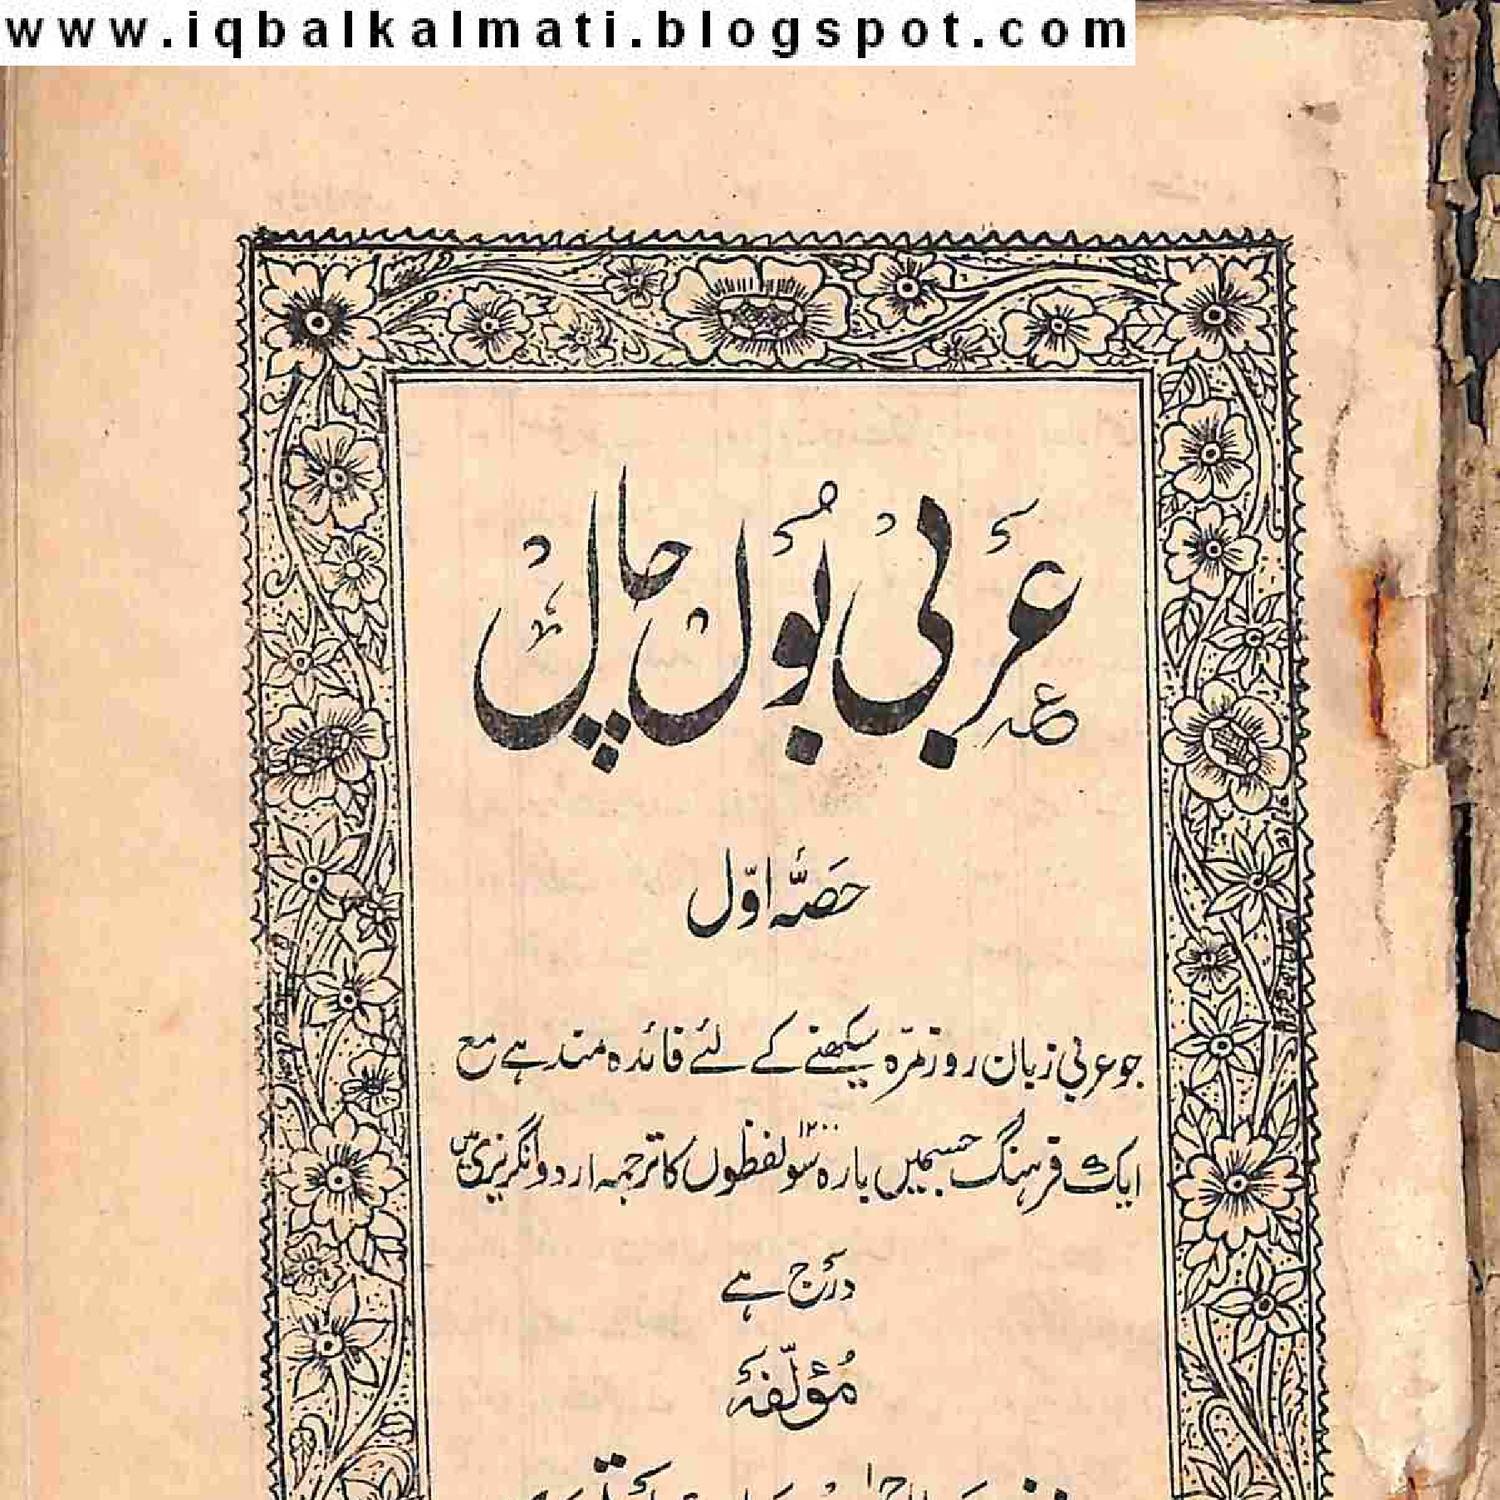 www.iqbalkalmati.blogspot.com
عَربی بُول چال
حصّہ اوّل
جو عربی زبان روزمرّہ سیکھنے کے لئے فائدہ مند ہے مع
ایک فرہنگ جسمیں بارہ سو ۱۲۰۰ لفظوں کا ترجمہ اردو انگریزی میں
درج ہے
مُؤلّفہٗ